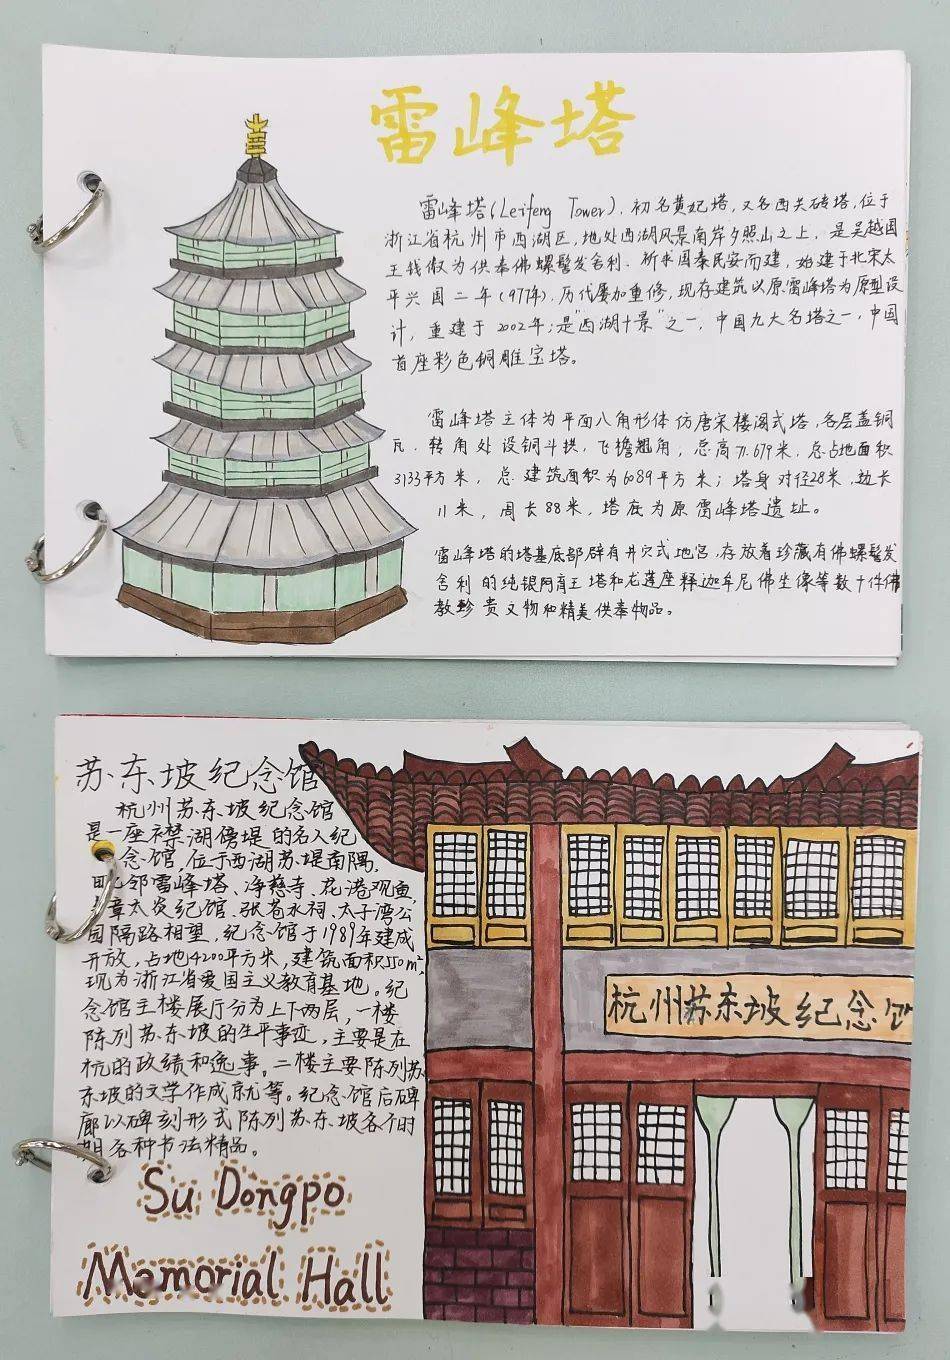 雷峰塔
雷峰塔(Leifeng Tower),初名黄妃塔,又名西关砖塔,位于
浙江省杭州市西湖区,地处西湖风景南岸夕照山之上,是吴越国
王钱俶为供奉佛螺髻发舍利、祈求国泰民安而建,始建于北宋太
平兴国二年(977年),历代屡加重修,现存建筑以原雷峰塔为原型设
计,重建于2002年;是"西湖十景"之一,中国九大名塔之一,中国
首座彩色铜雕宝塔。
雷峰塔主体为平面八角形体仿唐宋楼阁式塔,各层盖铜
瓦,转角处设铜斗拱,飞檐翘角,总高71.679米,总占地面积
3133平方米,总建筑面积为6089平方米;塔身对径28米,边长
11米,周长88米,塔底为原雷峰塔遗址。
雷峰塔的塔基底部辟有井穴式地宫,存放着珍藏有佛螺髻发
舍利的纯银阿育王塔和龙莲座释迦牟尼佛坐像等数十件佛
教珍贵文物和精美供奉物品。
苏东坡纪念馆
杭州苏东坡纪念馆
是一座襟湖傍堤的名人纪
念馆,位于西湖苏堤南隅,
毗邻雷峰塔、净慈寺、花港观鱼,
章太炎纪馆、张苍水祠、太子湾公
园隔路相望,纪念馆于1989年建成
开放,占地4200平方米,建筑面积550m²,
现为浙江省爱国主义教育基地。纪
念馆主楼展厅分为上下两层,一楼
陈列苏东坡的生平事迹,主要是在
杭的政绩和逸事。二楼主要陈列苏
东坡的文学作成就等。纪念馆后碑
廊以碑刻形式陈列苏东坡各个时
期各种书法精品。
Su Dongpo
Memorial Hall
杭州苏东坡纪念馆